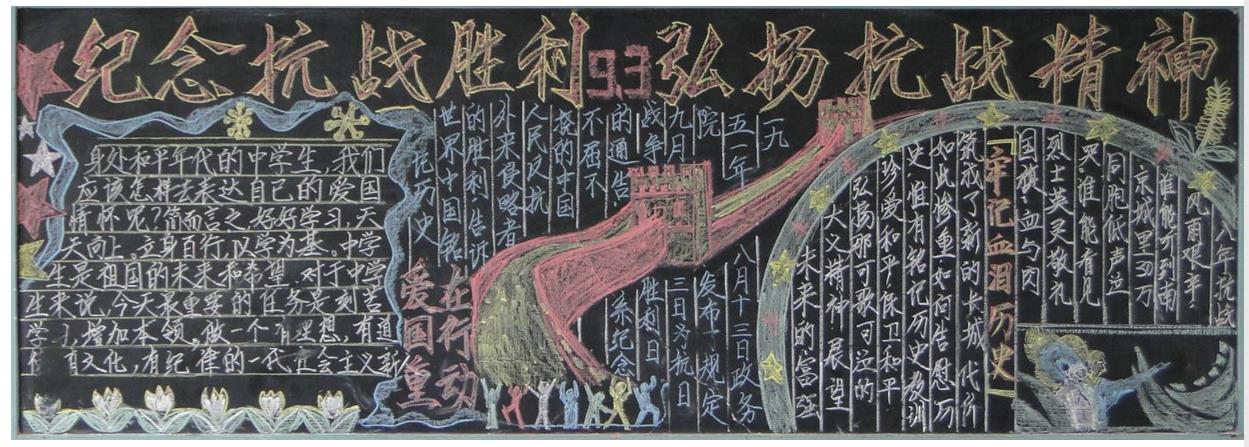 纪念抗战胜利9.3弘扬抗战精神
身处和平年代的中学生,我们
应该怎样去表达自己的爱国
情怀呢?简而言之,好好学习,天
天向上,立身百行,以学为基。中学
生是祖国的未来和希望,对于中学
生来说,今天最重要的任务是刻苦
学习,增加本领,做一个有理想,有道
有文化,有纪律的一代社会主义新人
爱国重
在行动
一九
五一年八月十三日政务
院发布了规定
九月三日为抗日
战争胜利日
的通告系纪念
不屈不
挠的中国
人民反抗
外来侵略者
的胜利告诉
世界中国铭
记历史
『牢记血泪历史』
八年抗战
风雨艰辛
谁能听到南
京城里30万
同胞低声泣
哭,谁能看见
烈士英灵敬礼
国旗,血与肉
筑成了新的长城 代价
如此惨重如何告慰历
史 惟有铭记历史教训
珍爱和平民卫和平
弘扬那可歌可泣的
大义精神 展望
未来的富强